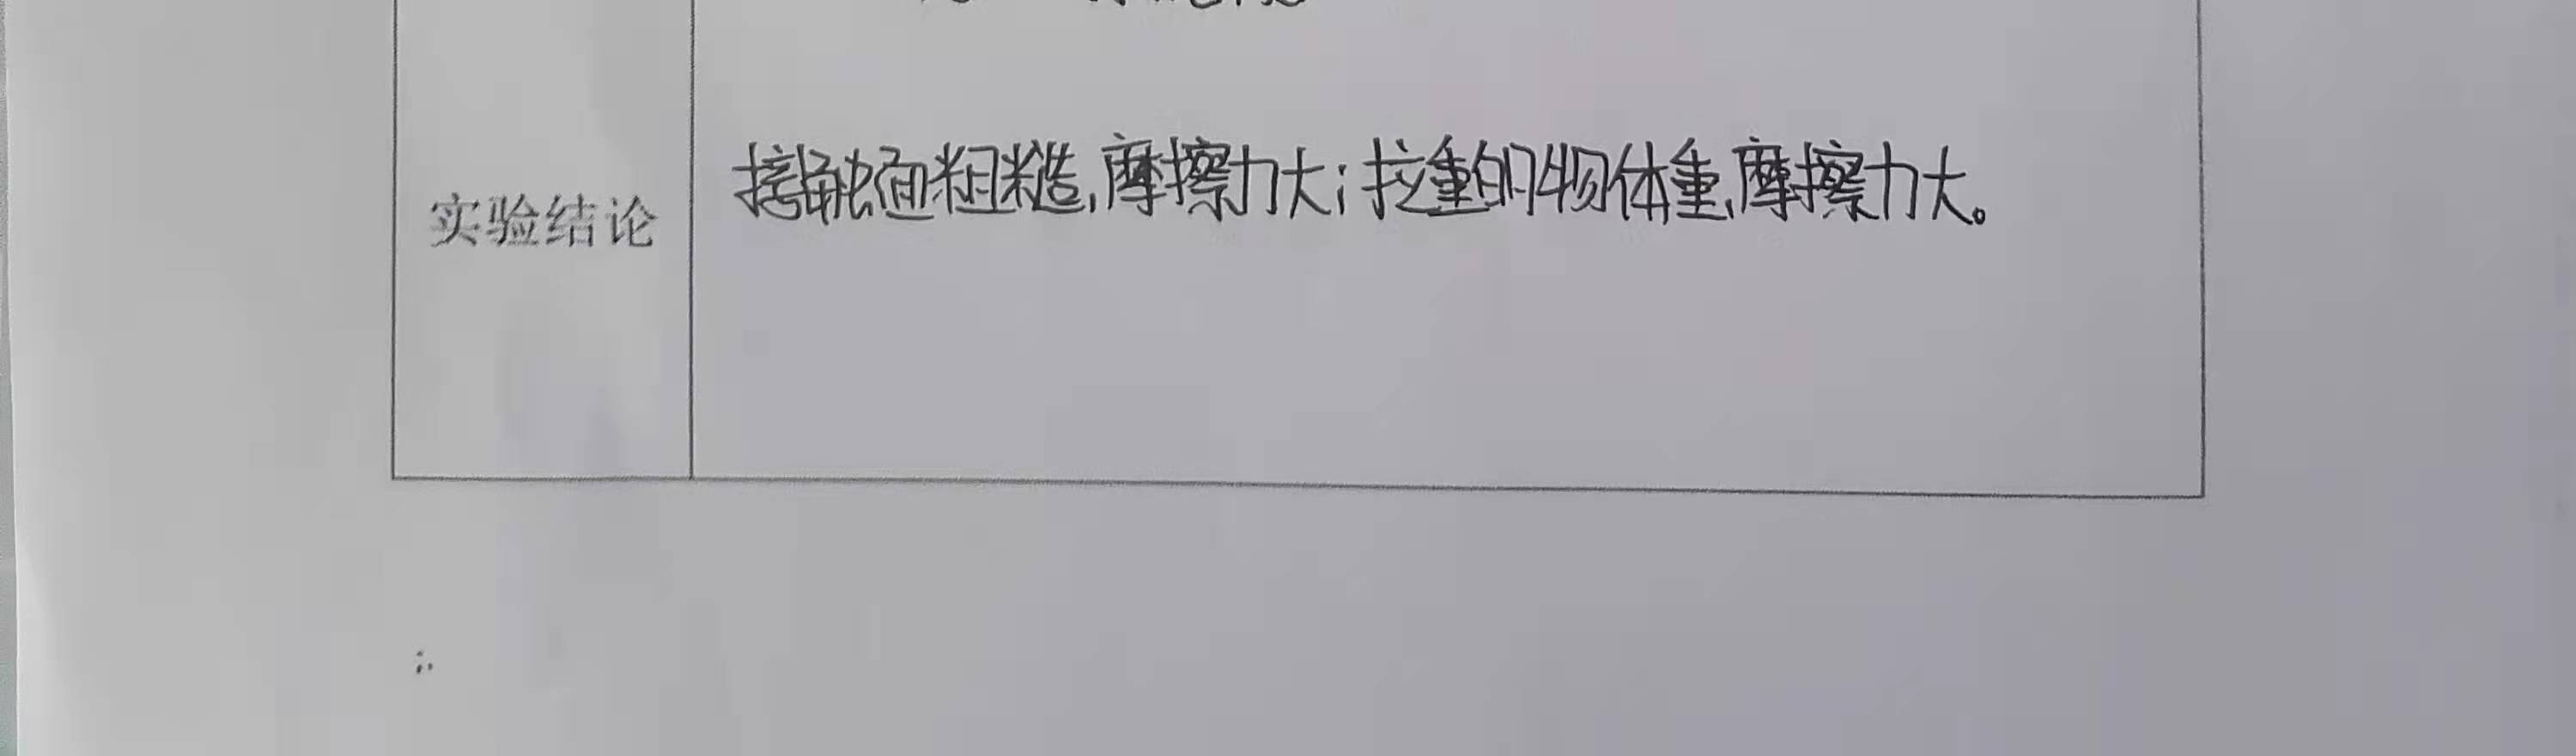 接触面粗糙,摩擦力大;拉重的物体重,摩擦力大。
实验结论